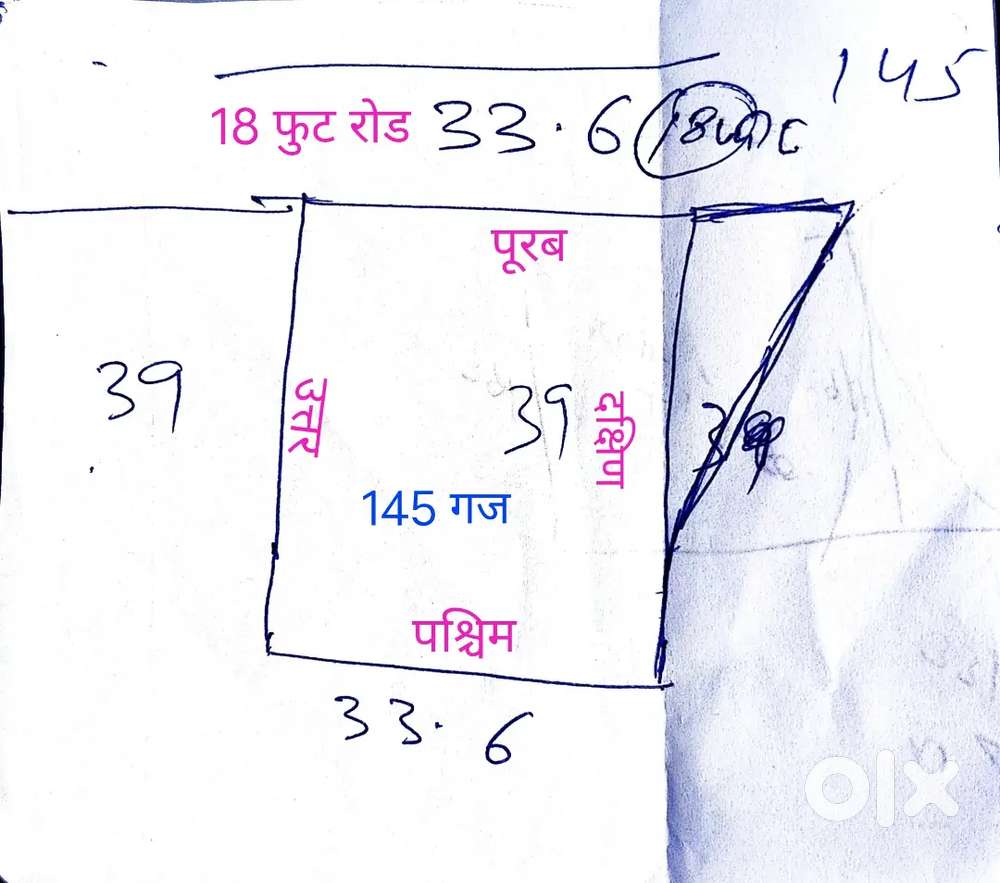 145
18 फुट रोड 33.6
पूरब
39
उत्तर
39
दक्षिण
145 गज
पश्चिम
33.6
olx